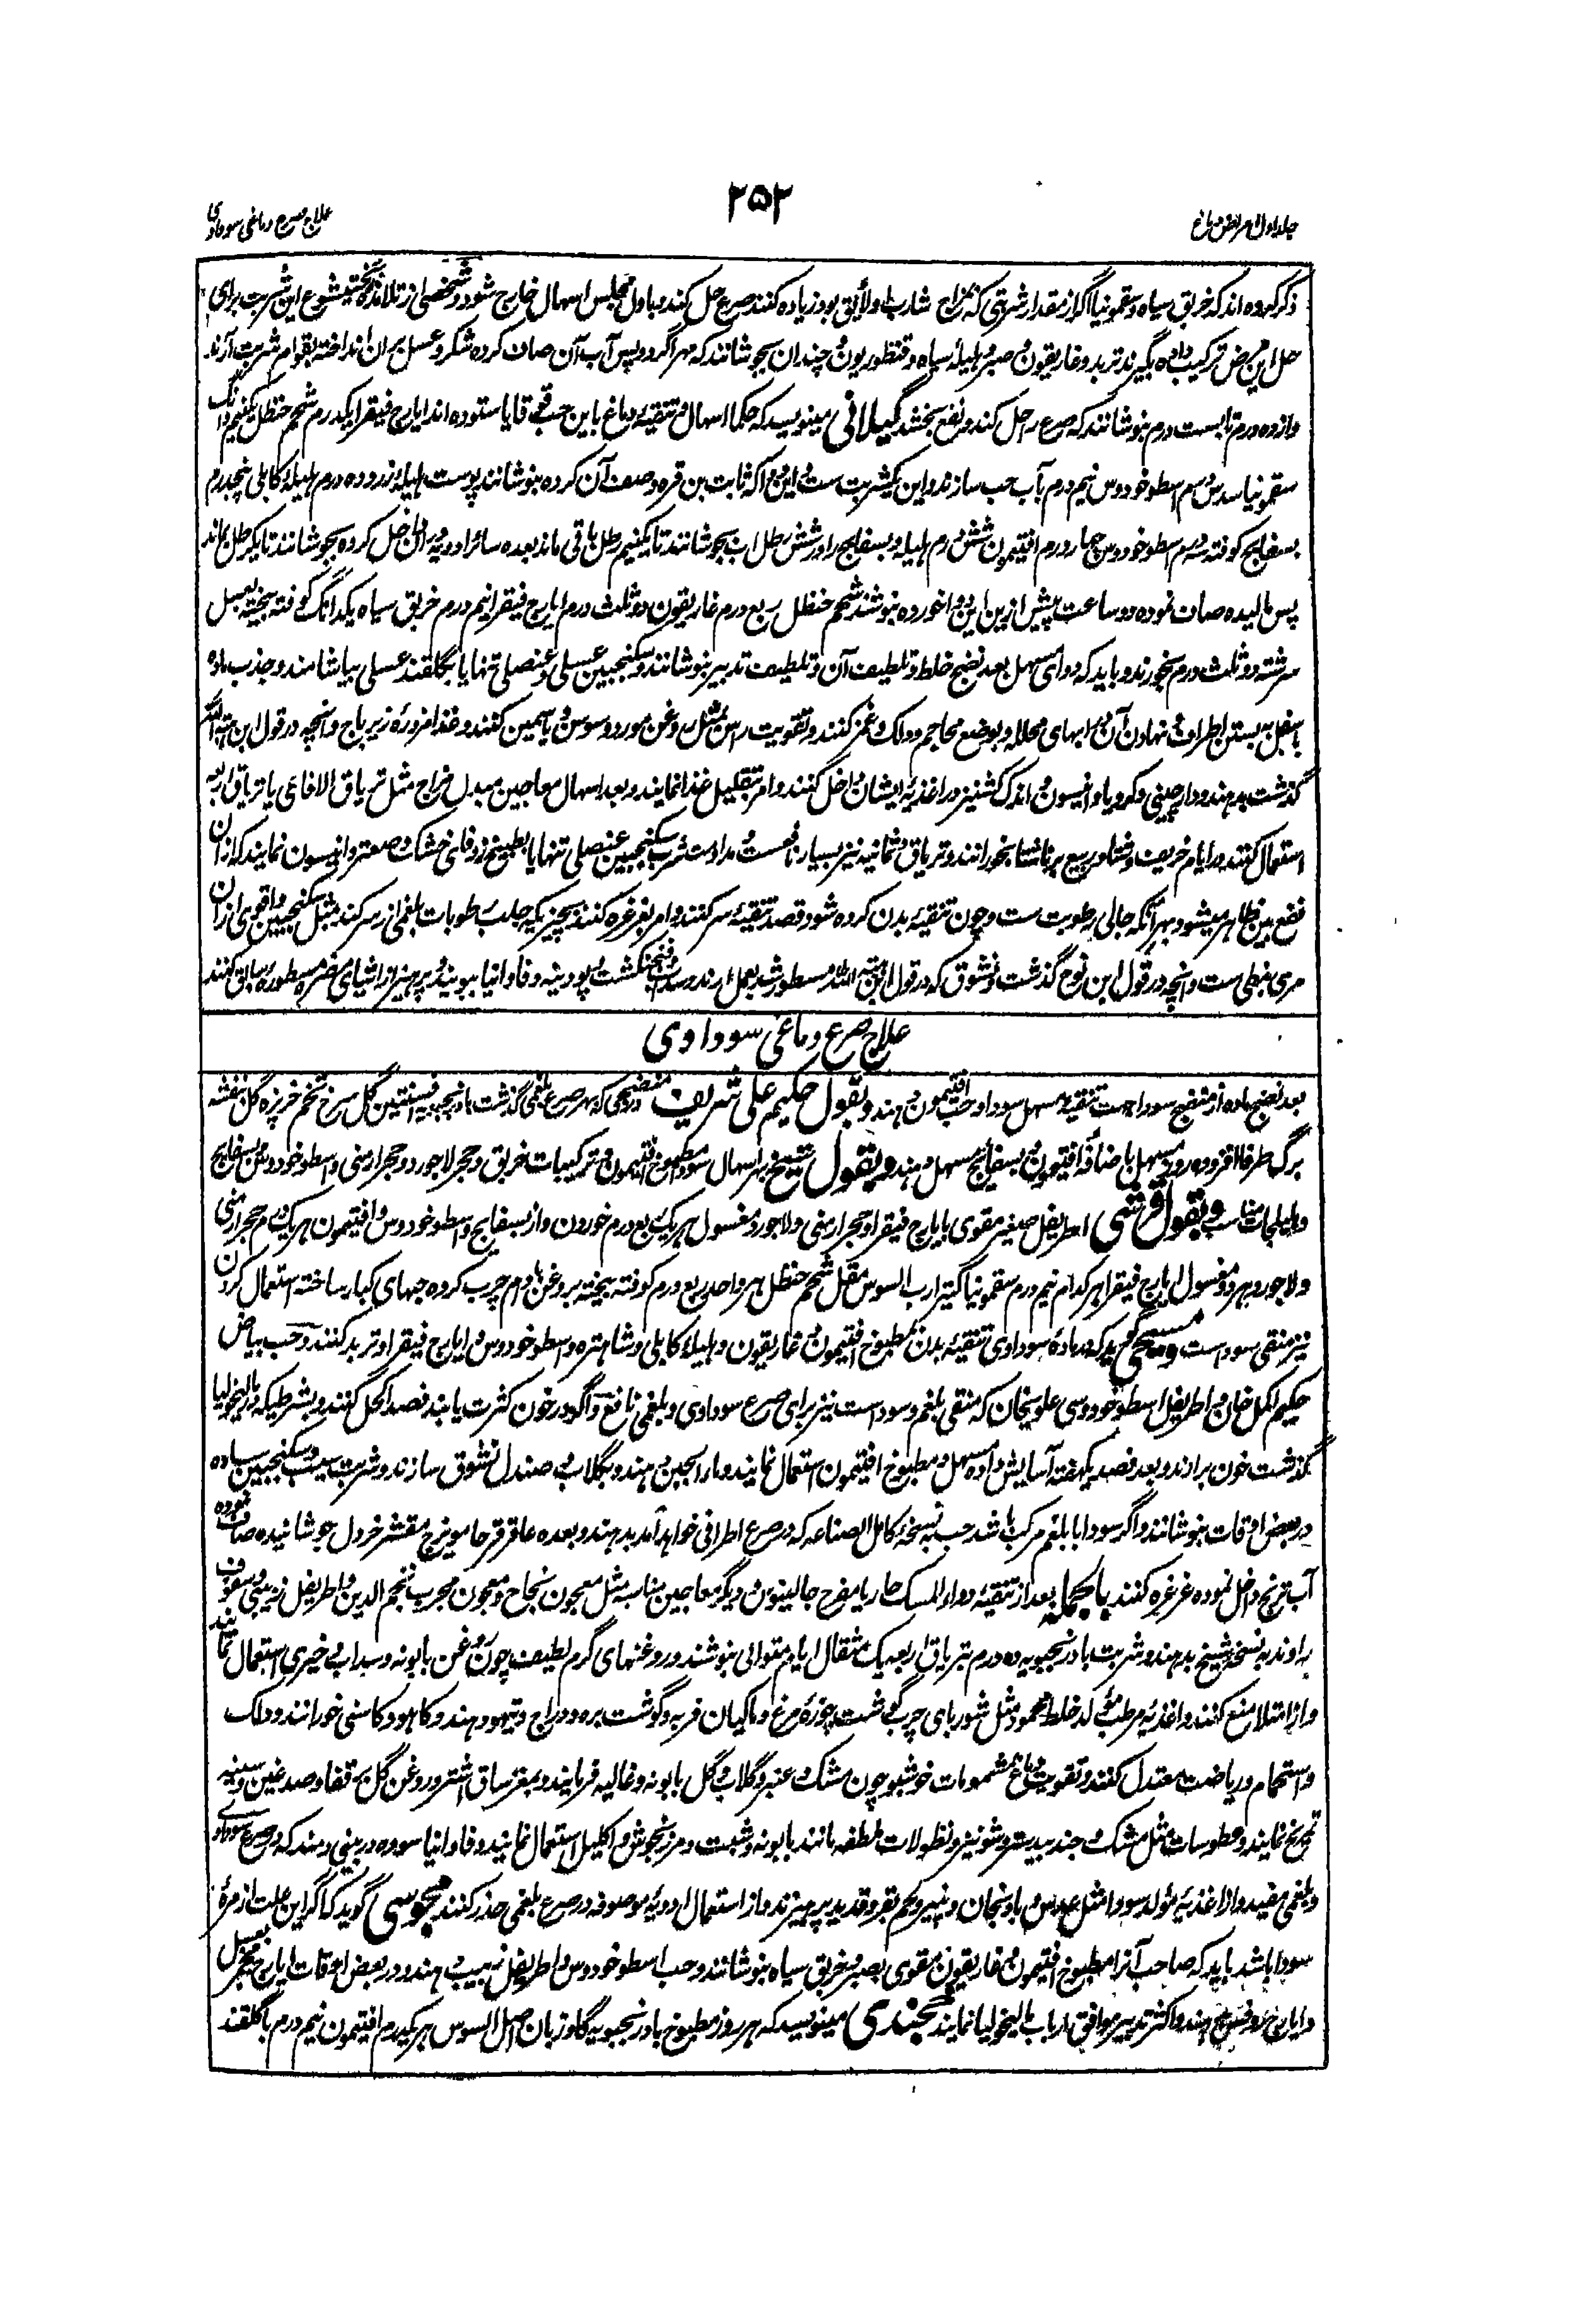 جلد اول امراض دماغ
۲۵۲
علاج صرع دماغی سوداوی
ذکر کرده اند که خربق سیاه و سقمونیا اگر از مقدار شربتی که بمزاج شارب اولا لایق بود زیاده کنند صرع حل کند و باول مجلس اسهال خارج شود و شخصی از تلامذه بختیشوع این شربت برای
حل این مرض ترکیب داده بگیرند تربد و غاریقون و صبر و هلیله سیاه و قنطوریون و چندان بجوشانند که مهرا گردد پس آب آن صاف کرده شکر و عسل بران انداخته بقوام شربت آرند
و از ده درم تا بست درم بنوشانند که صرع را حل کند و نفع بخشد گیلانی مینویسد که حکما اسهال و تنقیه دماغ باین حب قوقایا ستوده اند ایارج فیقرا یکدرم شحم حنظل نیم دانگ
سقمونیا سدس درم اسطوخودوس نیم درم بآب حب سازند و این یکشربت ست و این دوا که ثابت بن قره وصف آن کرده بنوشانند پوست هلیله زرد ده درم هلیله کابلی پنجدرم
بسفایج کوفته سه درم اسطوخودوس چهار درم افتیمون شش درم هلیله و بسفایج را در شش رطل آب بجوشانند تا یکنیم رطل باقی ماند بعده سائر ادویه دران داخل کرده بجوشانند تا یکرطل بماند
پس مالیده صاف نموده دو ساعت پیش ازین این دوا خورده بنوشند شحم حنظل ربع درم غاریقون دو ثلث درم ایارج فیقرا نیم درم خربق سیاه یکدانگ کوفته بیخته بعسل
سرشته دو ثلث درم بخورند و باید که دوای مسهل بعد نضج خلط و تلطیف آن و تلطیف تدبیر بنوشانند و سکنجبین عسلی و عنصلی تنها یا بگلقند عسلی بیاشامند و جذب ماده
باسفل به بستن اطراف و نهادن آن در آبهای محلله و بوضع محاجم و دلک و غمز کنند و تقویت راس بمثل روغن مورد و سوسن و یاسمین کنند و غذا مزوره زیرباج و آنچه در قول ابن هبة الله
گذشت بدهند و دارچینی و کرویا و انیسون و اندک کشنیز در اغذیه ایشان داخل کنند و امر بتقلیل غذا نمایند و بعد اسهال معاجین مبدل مزاج مثل تریاق الافاعی یا تریاق اربعه
استعمال کنند در ایام خریف و شتا و ربیع بر ناشتا بخورانند و تریاق ثمانیه نیز بسیار نافعست و مداومت شرب سکنجبین عنصلی تنها یا بطبیخ زوفای خشک و صعتر و انیسون نمایند که ازان
نفع بین ظاهر میشود بهر آنکه جالی رطوبت ست و چون تنقیه بدن کرده شود قصد تنقیه سر کنند و امر بغرغره کنند بچیزیکه جلب رطوبات بلغمی از سر کند مثل سکنجبین و اقوی ازان
مری نبطی ست و آنچه در قول ابن نوح گذشت و نشوق که در قول ابن هبة الله مسطور شد بعمل آرند و سداب و فنجنکشت و پودینه و فاوانیا ببویند و پرهیز از اشیای مضره مسطوره سابق کنند
علاج صرع دماغی سوداوی
بعد نضج ماده از منضج سودا جهت تنقیه مسهل سودا و حب افتیمون دهند و بقول حکیم علی شریف در منضجی که بهر صرع بلغمی گذشت بادرنجبویه افسنتین گل سرخ تخم خرپزه گل بنفشه
برگ طرفا افزوده روز مسهل باضافه افتیمون و بسفایج مسهل دهند و بقول شیخ بهر اسهال سودا مطبوخ افتیمون و ترکیبات خربق و حجر لاجورد و حجر ارمنی و اسطوخودوس و بسفایج
و هلیلجات مناسب و بقول قرشی اطریفل صغیر مقوی بایارج فیقرا و حجر ارمنی و لاجورد مغسول هریک ربع درم خوردن و از بسفایج و اسطوخودوس و افتیمون هریک درم حجر ارمنی
و لاجورد هر دو مغسول ایارج فیقرا هرکدام نیم درم سقمونیا کتیرا رب السوس مقل شحم حنظل هر واحد ربع درم کوفته بیخته بروغن بادام چرب کرده حبهای کبار ساخته استعمال کردن
نیز منقی سودا ست و مسیحی گوید که در ماده سوداوی تنقیه بدن بمطبوخ افتیمون و غاریقون و هلیله کابلی و شاهتره و اسطوخودوس و ایارج فیقرا و تربد کنند و حب بیاض
حکیم اکمل خان و اطریفل اسطوخودوسی علویخان که منقی بلغم و سودا ست نیز برای صرع سوداوی و بلغمی نافع و اگر در خون کثرت یابند فصد اکحل کنند و بشرطیکه در مالیخولیا
گذشت خون برآرند و بعد فصد یکهفته آسایش داده مسهل و مطبوخ افتیمون استعمال نمایند و ماءالجبن دهند و بگلاب و صندل نشوق سازند و شربت سیب و سکنجبین ساده
در بعض اوقات بنوشانند و اگر سودا با بلغم مرکب باشد حب به نسخه کامل الصناعه که در صرع اطرافی خواهد آمد بدهند و بعده عاقرقرحا مویزج مقشر خردل جوشانیده صاف نموده
آب ترنج داخل نموده غرغره کنند بالجمله بعد از تنقیه دواء المسک حار یا مفرح جالینوس و دیگر معاجین مناسبه مثل معجون نجاح و معجون مجرب نجم الدین و اطریفل زبیبی و سفوف
راوند به نسخه شیخ بدهند و شربت بادرنجبویه ده درم بتریاق اربعه یک مثقال ایام متوالی بنوشند و روغنهای گرم لطیف چون روغن بابونه و سداب و خیری استعمال نمایند
و از امتلا منع کنند و اغذیه مرطب مولد خلط محمود مثل شوربای چرب گوشت چوزه مرغ و ماکیان فربه و گوشت بره و دراج و تیهو دهند و کاهو و کاسنی خورانند و دلک
و استحمام و ریاضت معتدل کنند و تقویت دماغ بمشمومات خوشبو چون مشک و عنبر و گلاب و گل بابونه و غالیه فرمایند و بمغز ساق اشتر و روغن گل بر قفا و صدغین و سینه
تمریخ نمایند و عطوسات مثل مشک و جندبیدستر و شونیز و نطولات ملطفه مانند بابونه و شبت و مرزنجوش و اکلیل استعمال نمایند و فاوانیا سوده در بینی دمند که در صرع سوداوی
و بلغمی مفید و از اغذیه مولد سودا مثل عدس و بادنجان و پنیر و لحم بقر و قدید پرهیزند و از استعمال ادویه موصوفه در صرع بلغمی حذر کنند مجوسی گوید که اگر این علت از مره
سودا باشد باید که صاحب آنرا مطبوخ افتیمون و غاریقون مقوی بصبر و خربق سیاه بنوشانند و حب اسطوخودوس و اطریفل زبیب دهند و در بعض اوقات ایارج مخمر بعسل
و ایارج روفس دهند و اکثر تدبیر موافق ارباب مالیخولیا نمایند خجندی مینویسد که هر روز مطبوخ بادرنجبویه گاوزبان اصل السوس هر یکدرم افتیمون نیم درم با گلقند